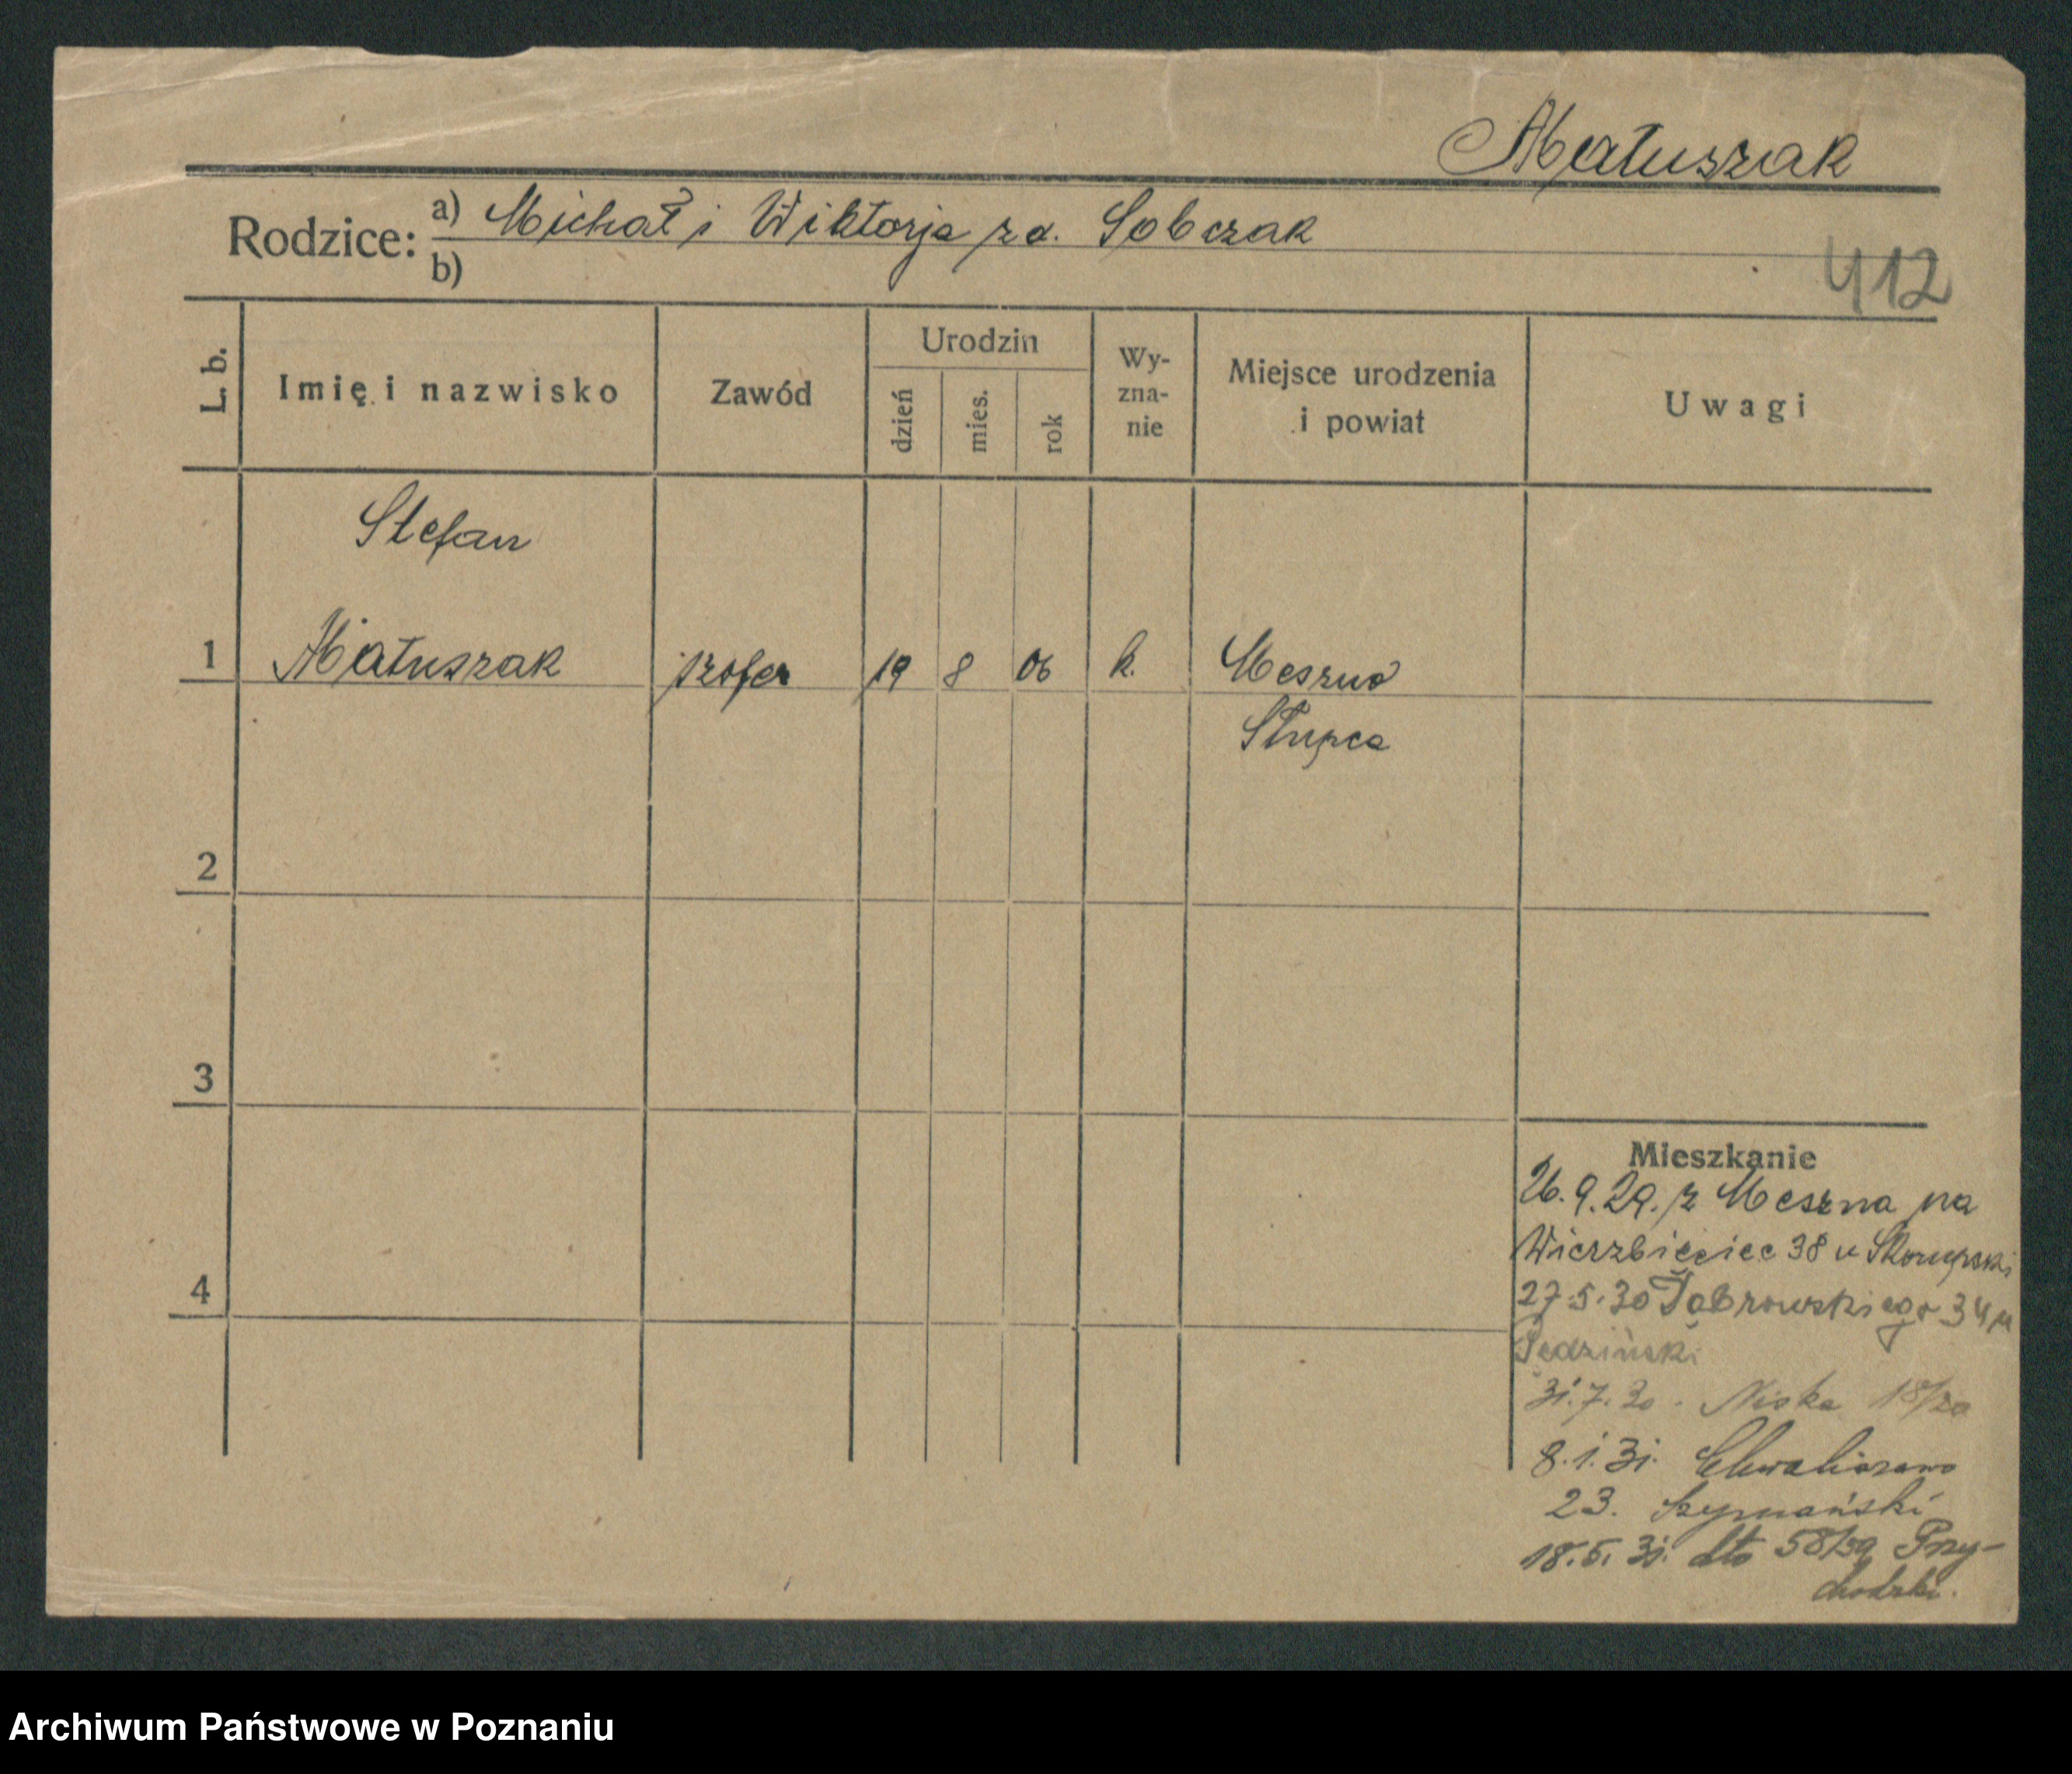 Matuszak
Rodzice: a) Michał i Wiktorja zd. Sobczak
b)
412
L. b. Imię i nazwisko Zawód Urodzin dzień mies. rok Wy-zna-nie Miejsce urodzenia i powiat Uwagi
Stefan
1 Matuszak szofer 19 8 06 k. Meszno
Słupca
2
3
Mieszkanie
26.9.29. z Meszna na
Wierzbięcice 38 u Skorupski
4
27.5.30 Dąbrowskiego 34 u
Pędziński
31.7.30. Niska
8.1.31. Chwaliszewo
23. Szymański
18.5.31. dto 58/59 Przy-
chodzki.
Archiwum Państwowe w Poznaniu